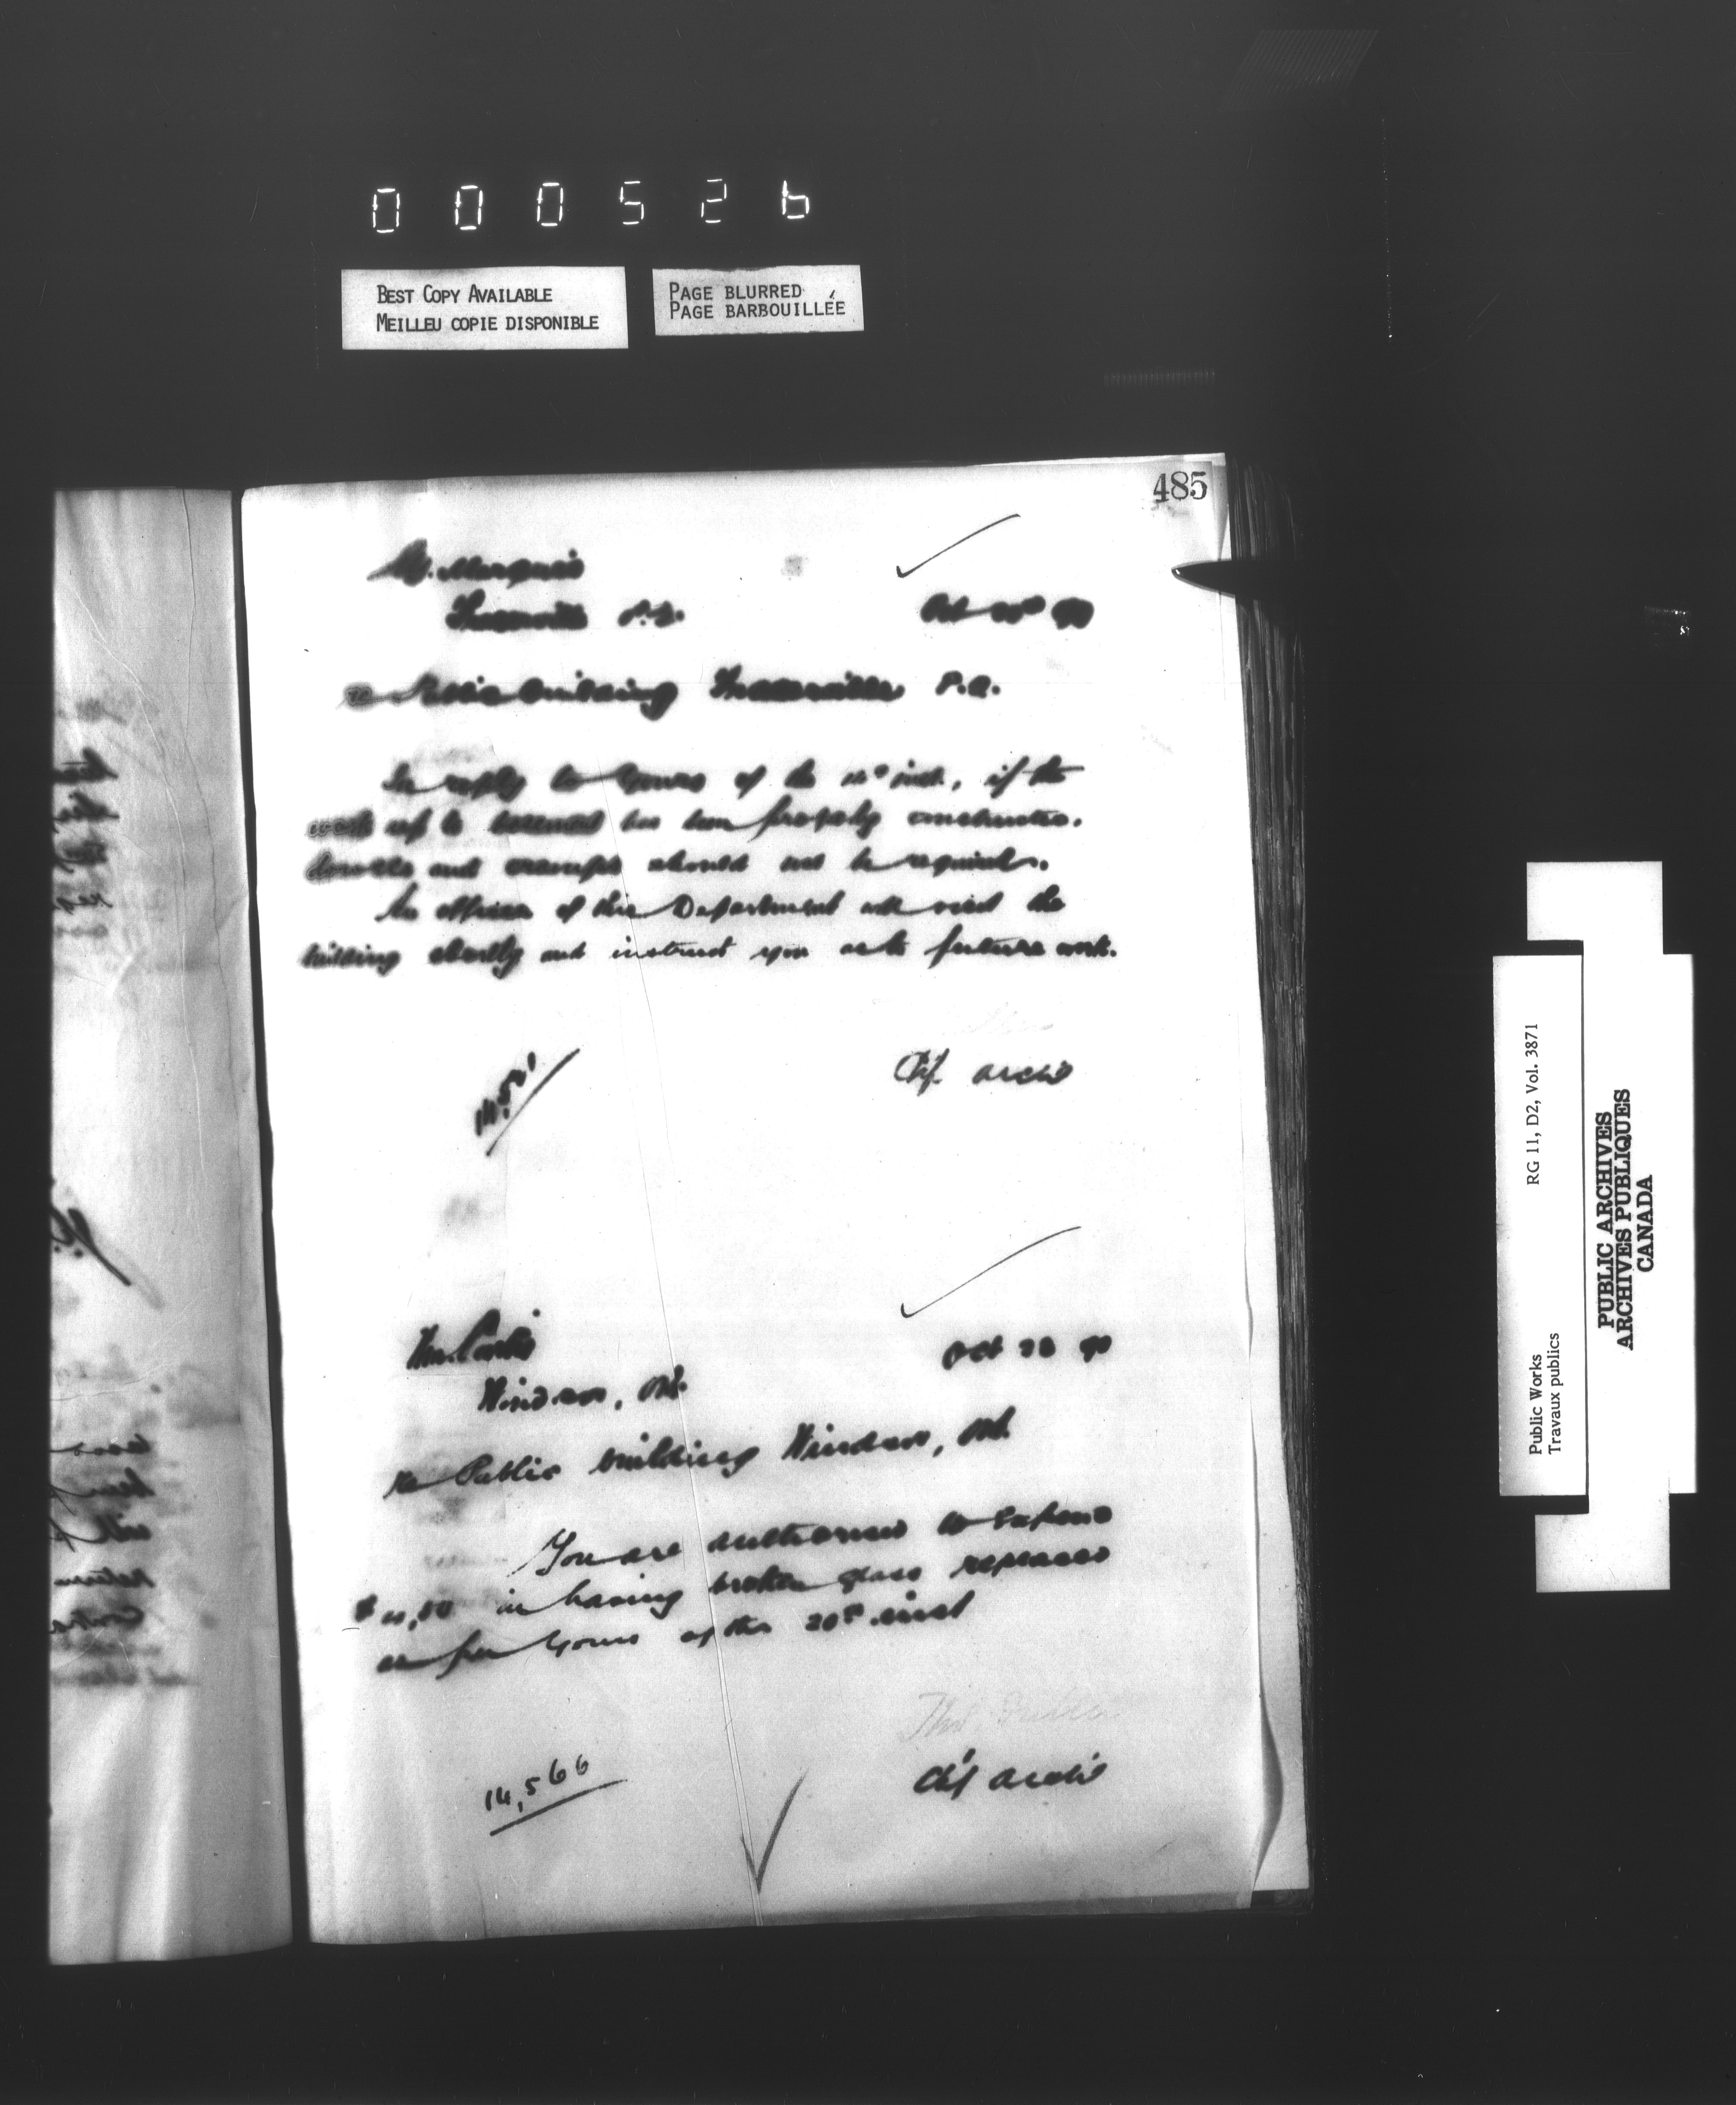 000526
BEST COPY AVAILABLE
MEILLEU COPIE DISPONIBLE
PAGE BLURRED
PAGE BARBOUILLÉE
485
Marquis
Fraserville P.Q.
Oct 90
re Public building Fraserville P.Q.
In reply to yours of the inst., if the
work up to has been properly constructed.
dowels and cramps should not be required.
An officer of this Department will visit the
building shortly and instruct you as to future work.
Chf. Archt
Windsor, Ont.
Oct 90
re Public building Windsor, Ont.
You are authorised to expend
$ in having broken glass replaced
as per yours of the 20th inst
Thos. Fuller
Chf Archt
14,566
RG 11, D2, Vol. 3871
Public Works
Travaux publics
PUBLIC ARCHIVES
ARCHIVES PUBLIQUES
CANADA